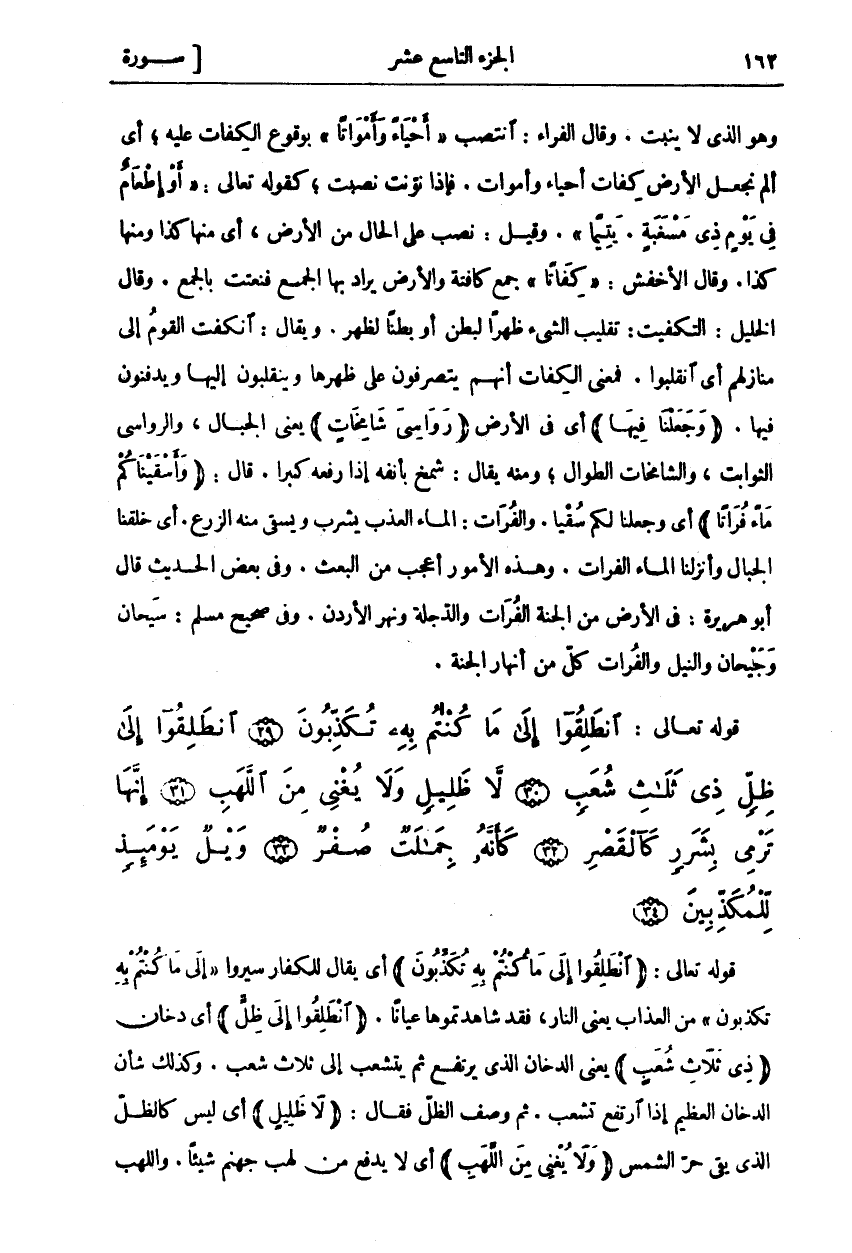 ١٦٢ الجزء التاسع عشر [ ســورة
وهو الذى لا ينبت . وقال الفراء : ٱنتصب « أَحْيَاءً وَأَمْوَاتًا » بوقوع الكفات عليه ؛ أى
ألم نجعـل الأرض كفات أحياء وأموات . فإذا نوّنت نصبت ؛ كقوله تعالى : « أَوْ إِطْعَامٌ
فِى يَوْمٍ ذِى مَسْغَبَةٍ . يَتِيمًا » . وقيـل : نصب على الحال من الأرض ، أى منها كذا ومنها
كذا . وقال الأخفش : « كِفَاتًا » جمع كافتة والأرض يراد بها الجمـع فنعتت بالجمع . وقال
الخليل : التـكفيت : تقليب الشىء ظهرًا لبطن أو بطنًا لظهر . ويقال : ٱنكفت القومُ إلى
منازلهم أى ٱنقلبوا . فمعنى الكفات أنهـم يتصرفون على ظهرها وينقلبون إليهـا ويدفنون
فيها . ( وَجَعَلْنَا فِيهَـا ) أى فى الأرض ( رَوَاسِىَ شَامِخَاتٍ ) يعنى الجبـال ، والرواسى
الثوابت ، والشامخات الطوال ؛ ومنه يقال : شمخ بأنفه إذا رفعه كبرا . قال : ( وَأَسْقَيْنَاكُمْ
مَاءً فُرَاتًا ) أى وجعلنا لكم سُقْيا . والفُرَات : المـاء العذب يشرب ويسقى منه الزرع . أى خلقنا
الجبال وأنزلنا المـاء الفرات . وهـذه الأمور أعجب من البعث . وفى بعض الحـديث قال
أبو هريرة : فى الأرض من الجنة الفُرَات والدّجلة ونهر الأردن . وفى صحيح مسلم : سَيحان
وَجَيْحان والنيل والفُرات كلّ من أنهار الجنة .
قوله تعـالى : ٱنطَلِقُوٓا إِلَىٰ مَا كُنتُم بِهِۦ تُـكَذِّبُونَ ۝٢٩ ٱنطَـلِقُوٓا إِلَىٰ
ظِلٍّ ذِى ثَلَـٰثِ شُعَبٍ ۝٣٠ لَّا ظَلِيلٍ وَلَا يُغْنِى مِنَ ٱللَّهَبِ ۝٣١ إِنَّهَا
تَرْمِى بِشَرَرٍ كَٱلْقَصْرِ ۝٣٢ كَأَنَّهُۥ جِمَـٰلَتٌ صُـفْرٌ ۝٣٣ وَيْـلٌ يَوْمَئِـذٍ
لِّلْمُكَذِّبِينَ ۝٣٤
قوله تعالى : ( ٱنْطَلِقُوا إِلَى مَا كُنْتُمْ بِهِ تُكَذِّبُونَ ) أى يقال للكفار سيروا « إِلَى مَا كُنْتُمْ بِهِ
تكذبون » من العذاب يعنى النار ، فقد شاهدتموها عيانًا . ( ٱنْطَلِقُوا إِلَى ظِلٍّ ) أى دخان
( ذِى ثَلَاثِ شُعَبٍ ) يعنى الدخان الذى يرتفـع ثم يتشعب إلى ثلاث شعب . وكذلك شأن
الدخان العظيم إذا ٱرتفع تشعب . ثم وصف الظلّ فقـال : ( لَا ظَلِيلٍ ) أى ليس كالظـلّ
الذى يقى حرّ الشمس ( وَلَا يُغْنِى مِنَ اللَّهَبِ ) أى لا يدفع من لهب جهنم شيئًا . واللهب